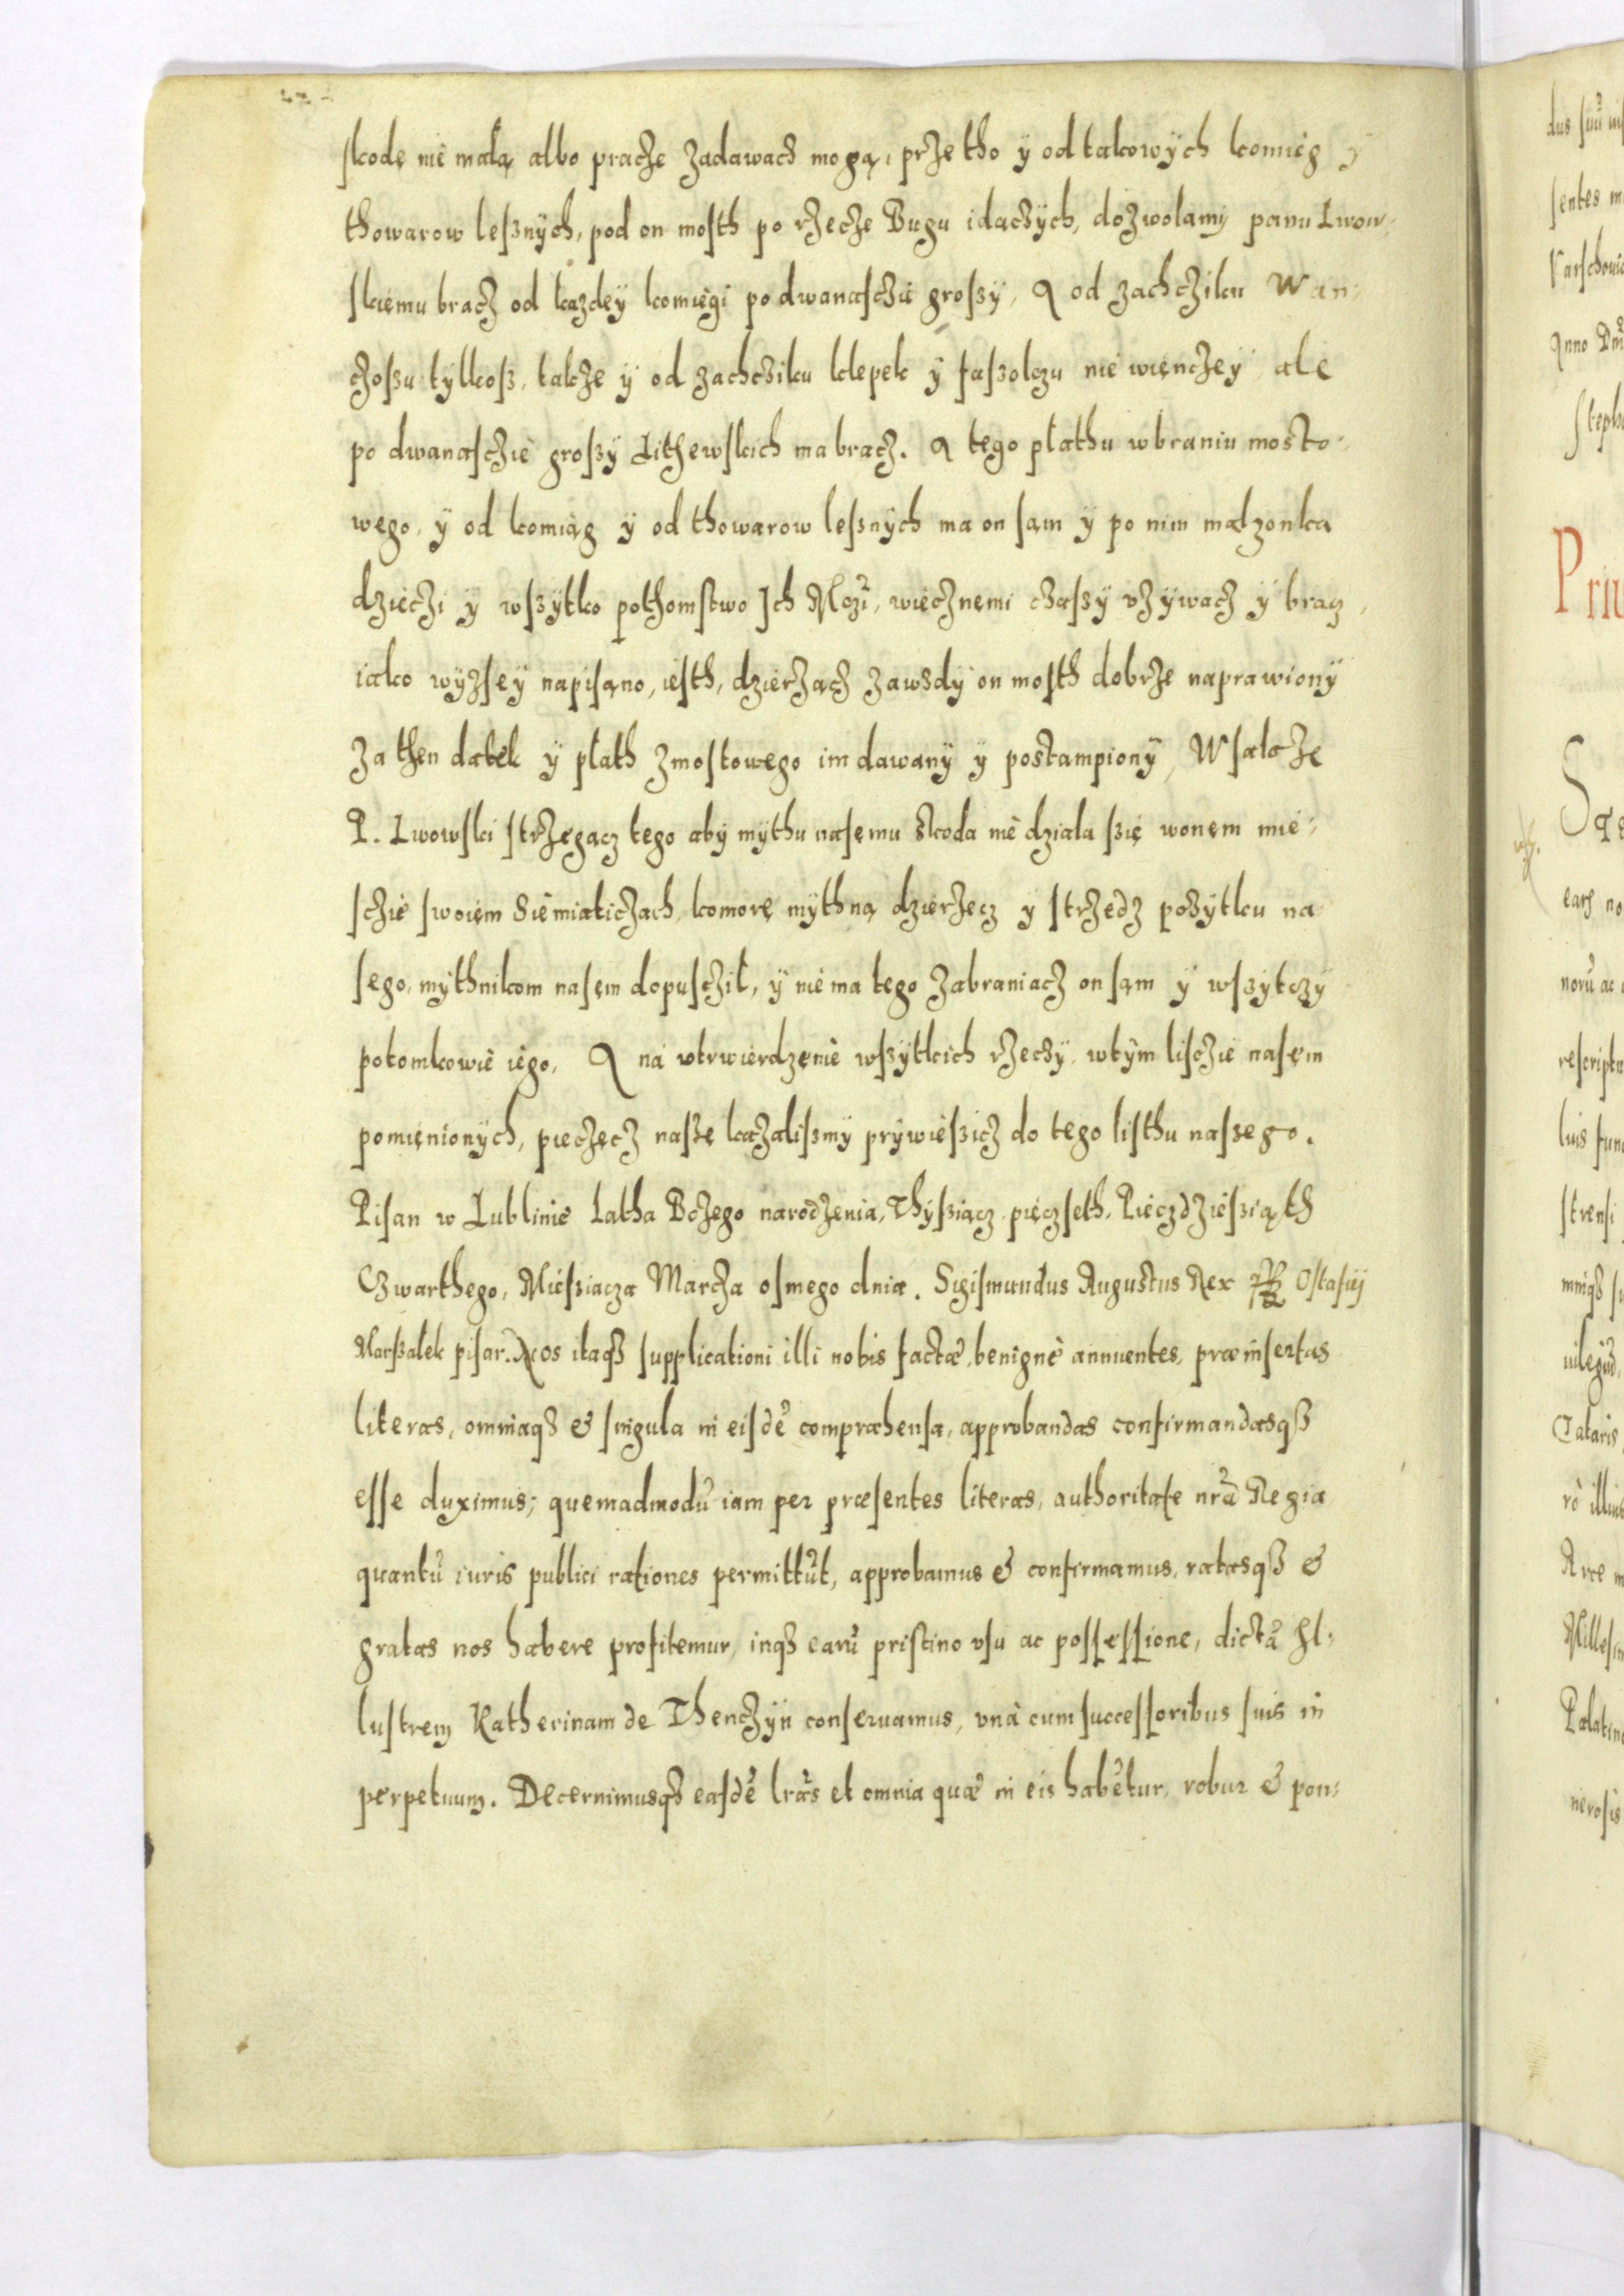 skodę nié małą albo pracze zadawacz mogą, przetho ÿ od takowÿch komiég ÿ
thowarow lesznÿch, pod on mosth po rzecze Bugu idaczÿch, dozwolamÿ panu Lwow-
skiému bracz od kazdeÿ komiégi po dwanasczié groszÿ, A od zachczіku Wan-
czoszu tÿlkosz, takze ÿ od zachcziku klepek ÿ faszolczu nié wiénczeÿ ale
po dwanasczié groszÿ Lithewskich ma bracz. A tego płathu w braniu mosto-
wego, ÿ od komiąg ÿ od thowarow lesznÿch ma on sąm ÿ po nim małzonka
dziéczi ÿ wszÿtko pothomstwo Ich Mczi, wiécznemi czaszÿ vzÿwacz ÿ bracz,
iako wÿzseÿ napisąno, iésth, dziérzącz zawzdÿ on mosth dobrze naprawionÿ
za then datek ÿ płath zmostowego im dawanÿ ÿ postampionÿ, Wsakze
P. Lwowski strzegącz tego abÿ mÿthu nasemu skoda nié działa szię wonem mié-
sczié swoiém Siémiaticzach, komorę mÿthną dziérzecz ÿ strzedz pozÿtku na-
sego, mÿthnikom nasem dopusczіł, ÿ nié ma tego zabraniacz on sąm ÿ wszÿtczÿ
potomkowié iégo, A na vtrwiérdzenié wszÿtkich rzeczÿ, wtÿm lisczié nasęm
pomiénionÿch, pieczęcz nasze kazaliszmÿ prÿwiészicz do tego listhu naszego.
Pisan w Lublinié Latha Bożego narodzenia, Thÿsziącz piéczseth, Piéczdziésziąth
Czwarthego, Miésziącza Marcza osmego dnia. Sigismundus Augustus Rex Ostafiÿ
Marszałek pisar. Nos itaqꝫ supplicationi illi nobis factæ, benignè annuentes, præinsertas
literas, omniaqꝫ & singula in eisdē compræhensa, approbandas confirmandasqꝫ
esse duximus; quemadmodū iam per præsentes literas, authoritate nrā Regia
quantū iuris publici rationes permittūt, approbamus & confirmamus, ratasqꝫ &
gratas nos habere profitemur, inqꝫ earū pristino vsu ac possessione, dictā Il-
lustrem Katherinam de Thenczÿn conseruamus, vnà cum successoribus suis in
perpetuum. Decernimusqꝫ easdē lrās et omnia quæ in eis habētur, robur & pon-